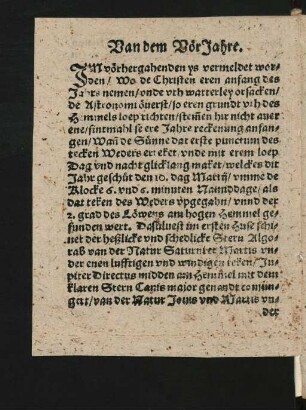 Van dem Vör Jahre.
IM vörhergahenden ys vermeldet wor-
den/ Wo de Christen eren anfang des
Jars nemen/ vnde vth watterley orsacken/
de Astronomi överst/ so eren grundt vth des
Himmels loep richten/ stem̄en hir nicht auer
ene/ sintmahl se ere Jahre reckenung anfan-
gen/ Wan̄ de Sünne dat erste punctum des
tecken Weders er eket vnde mit erem loep
Dag vnd nacht glick lang maket/ welckes dit
Jahr geschüt den 10. dag Martij/ vmme de
Klocke 6. vnd 6. minuten Namiddage/ als
dat teken des Weders vpgegahn/ vnnd der
2. grad des Löwens am hogen Hemmel ge-
funden wert. Dasüluest im ersten Huse schi-
net der heßlicke vnd schedlicke Stern Algo-
rab van der Natur Saturni et Martis vn-
der enen lufftigen vnd windigen teken/ Ju-
piter Directus midden am Hem̄el mit dem
klaren Stern Canis major genandt
gert/ van der Natur Jouis vnd Martis vn-
der